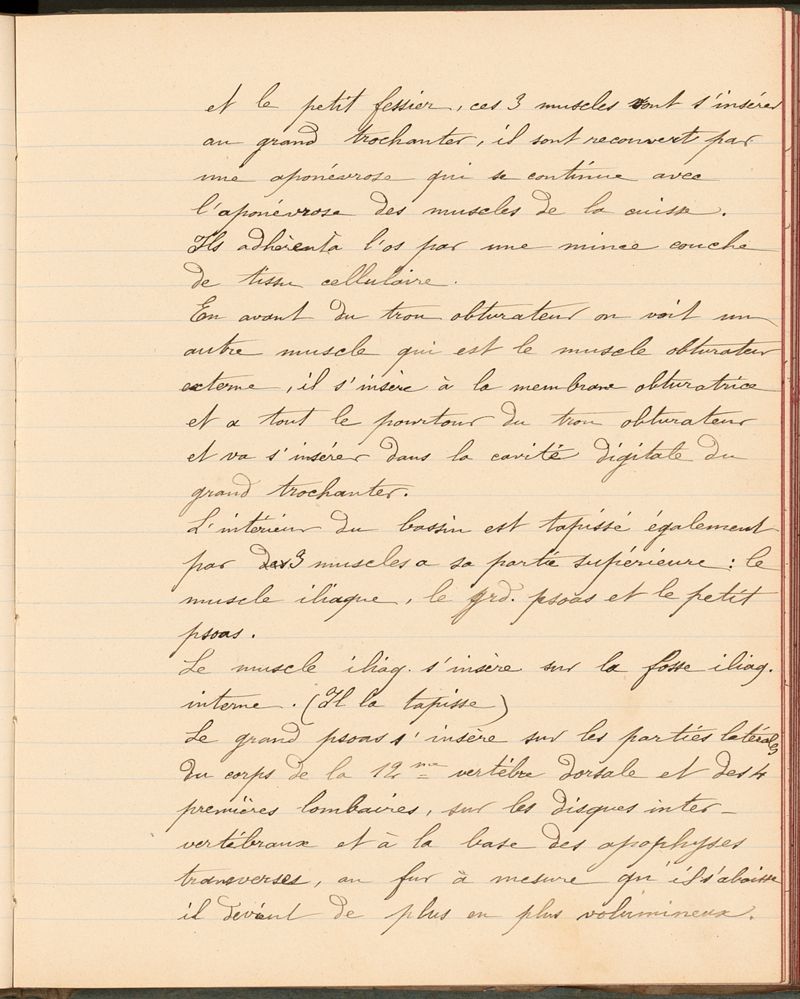 et le petit fessier, ces 3 muscles vont s'insérer
au grand trochanter, il sont recouvert par
une aponévrose qui se continue avec
l'aponévrose des muscles de la cuisse.
Ils adhèrent à l'os par une mince couche
de tissu cellulaire.
En avant du trou obturateur on voit un
autre muscle qui est le muscle obturateur
externe, il s'insère à la membrane obturatrice
et a tout le pourtour du trou obturateur
et va s'insérer dans la cavité digitale du
grand trochanter.
L'intérieur du bassin est tapissé également
par des 3 muscles a sa partie supérieure : le
muscle iliaque, le grd. psoas et le petit
psoas.
Le muscle iliaq. s'insère sur la fosse iliaq.
interne. (Il la tapisse)
Le grand psoas s'insère sur les parties latérales
du corps de la 12me vertèbre dorsale et des 4
premières lombaires, sur les disques inter-
vertébraux et à la base des apophyses
transverses, au fur à mesure qu'il s'abaisse
il devient de plus en plus volumineux.